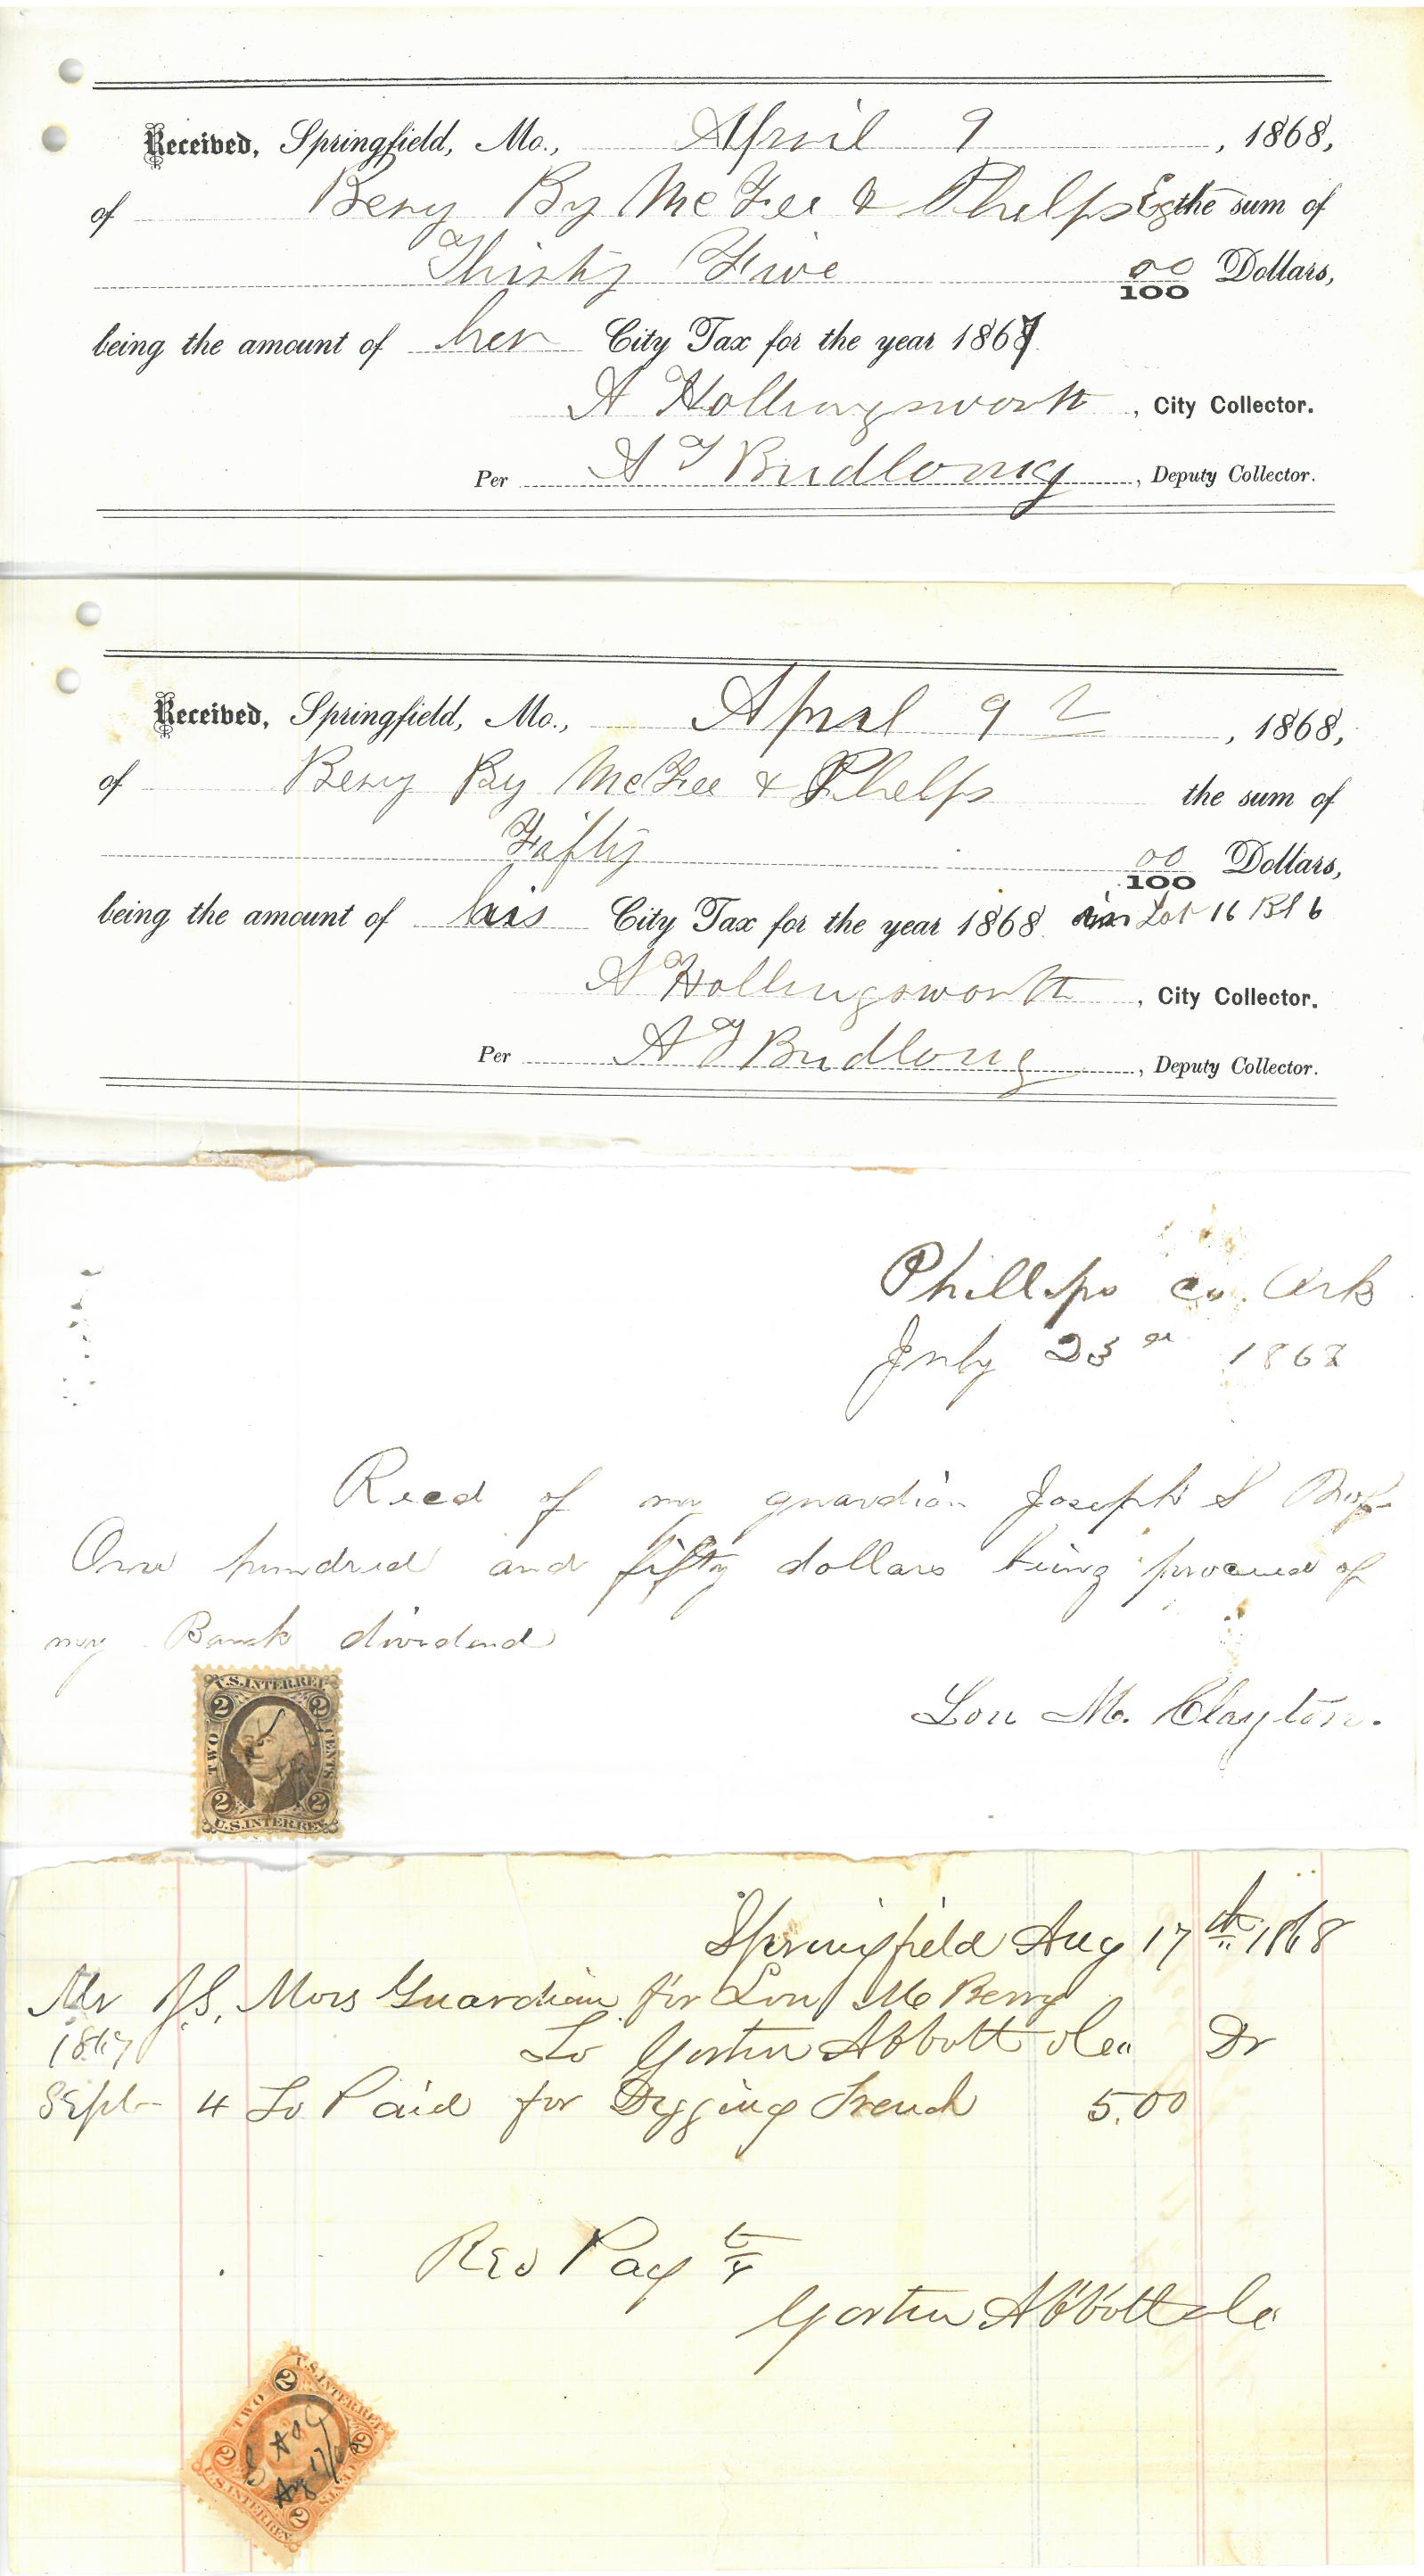 Received, Springfield, Mo., April 9, 1868,
of Berry By McFee & Phelps Eq the sum of
Thirty Five 00/100 Dollars,
being the amount of her City Tax for the year 1867
A Hollingsworth, City Collector.
Per A T Budlong, Deputy Collector.
Received, Springfield, Mo., April 9, 1868,
of Berry By McFee & Phelps the sum of
Fifty 00/100 Dollars,
being the amount of his City Tax for the year 1868 Lot 16 Bl 6
A Hollingsworth, City Collector.
Per A T Budlong, Deputy Collector.
Phillips co. Ark
July 23rd 1868
Recd of my guardian Joseph S
One hundred and fifty dollars being proceed of
my Bank dividend
U.S. INTER. REV.
2 2
TWO CENTS
2 2
U.S. INTER. REV.
Lou M. Clayton.
Springfield Aug 17th 1868
Mr J.S. Moss Guardian for Lou M Berry
1867 To Gorton Abbott & Co Dr
Sept 4 To Paid for Digging Trench 5.00
Rec Pay t
Gorton Abbott & Co
U.S. INTER. REV.
2 2
TWO CENTS
G A & C
Aug 17/68
2 2
U.S. INTER. REV.